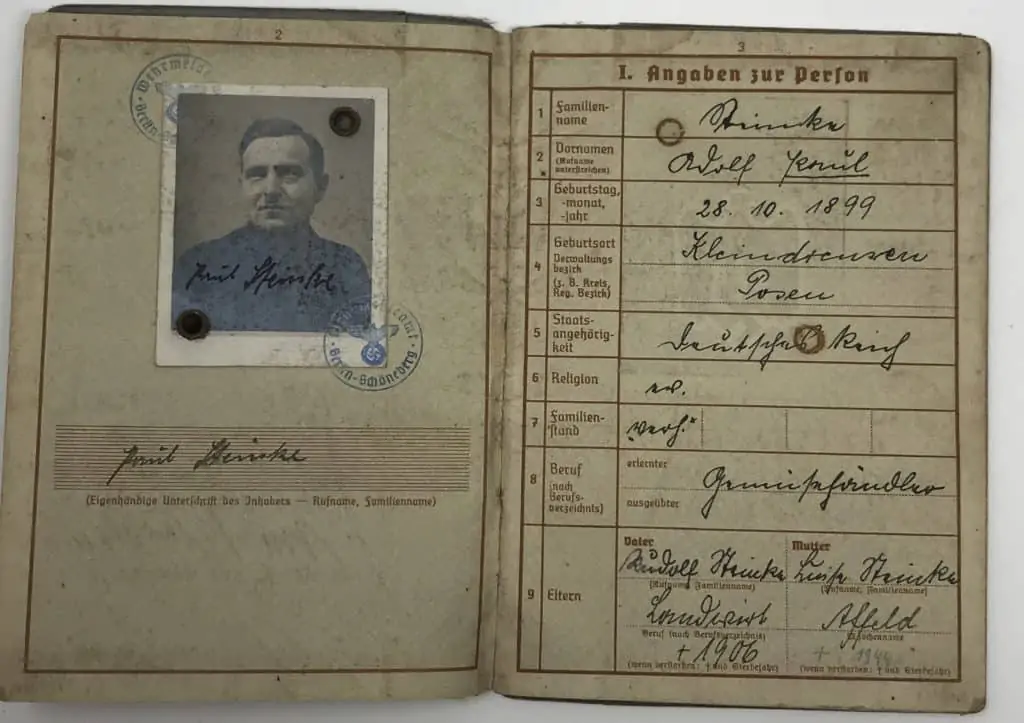 2
Wehrmelde
Berlin-Schöneberg
Paul Steinke
Paul Steinke
(Eigenhändige Unterschrift des Inhabers — Rufname, Familienname)
3
I. Angaben zur Person
1 Familien-
name
Steinke
2 Vornamen
(Rufname
unterstreichen)
Adolf Paul
3 Geburtstag,
-monat,
-jahr
28. 10. 1899
4 Geburtsort
Verwaltungs
bezirk
(z. B. Kreis,
Reg. Bezirk)
Posen
5 Staats-
angehörig-
keit
Deutsches Reich
6 Religion
ev.
7 Familien-
stand
verh.
8 Beruf
(nach
Berufs-
verzeichnis)
erlernter
Gemüsehändler
ausgeübter
9 Eltern
Vater
Rudolf Steinke
(Rufname, Familienname)
Landwirt
Beruf (nach Berufsverzeichnis)
† 1906
(wenn verstorben: † und Sterbejahr)
Mutter
Luise Steinke
(Rufname, Familienname)
Affeld
Mädchenname
† 1944
(wenn verstorben: † und Sterbejahr)